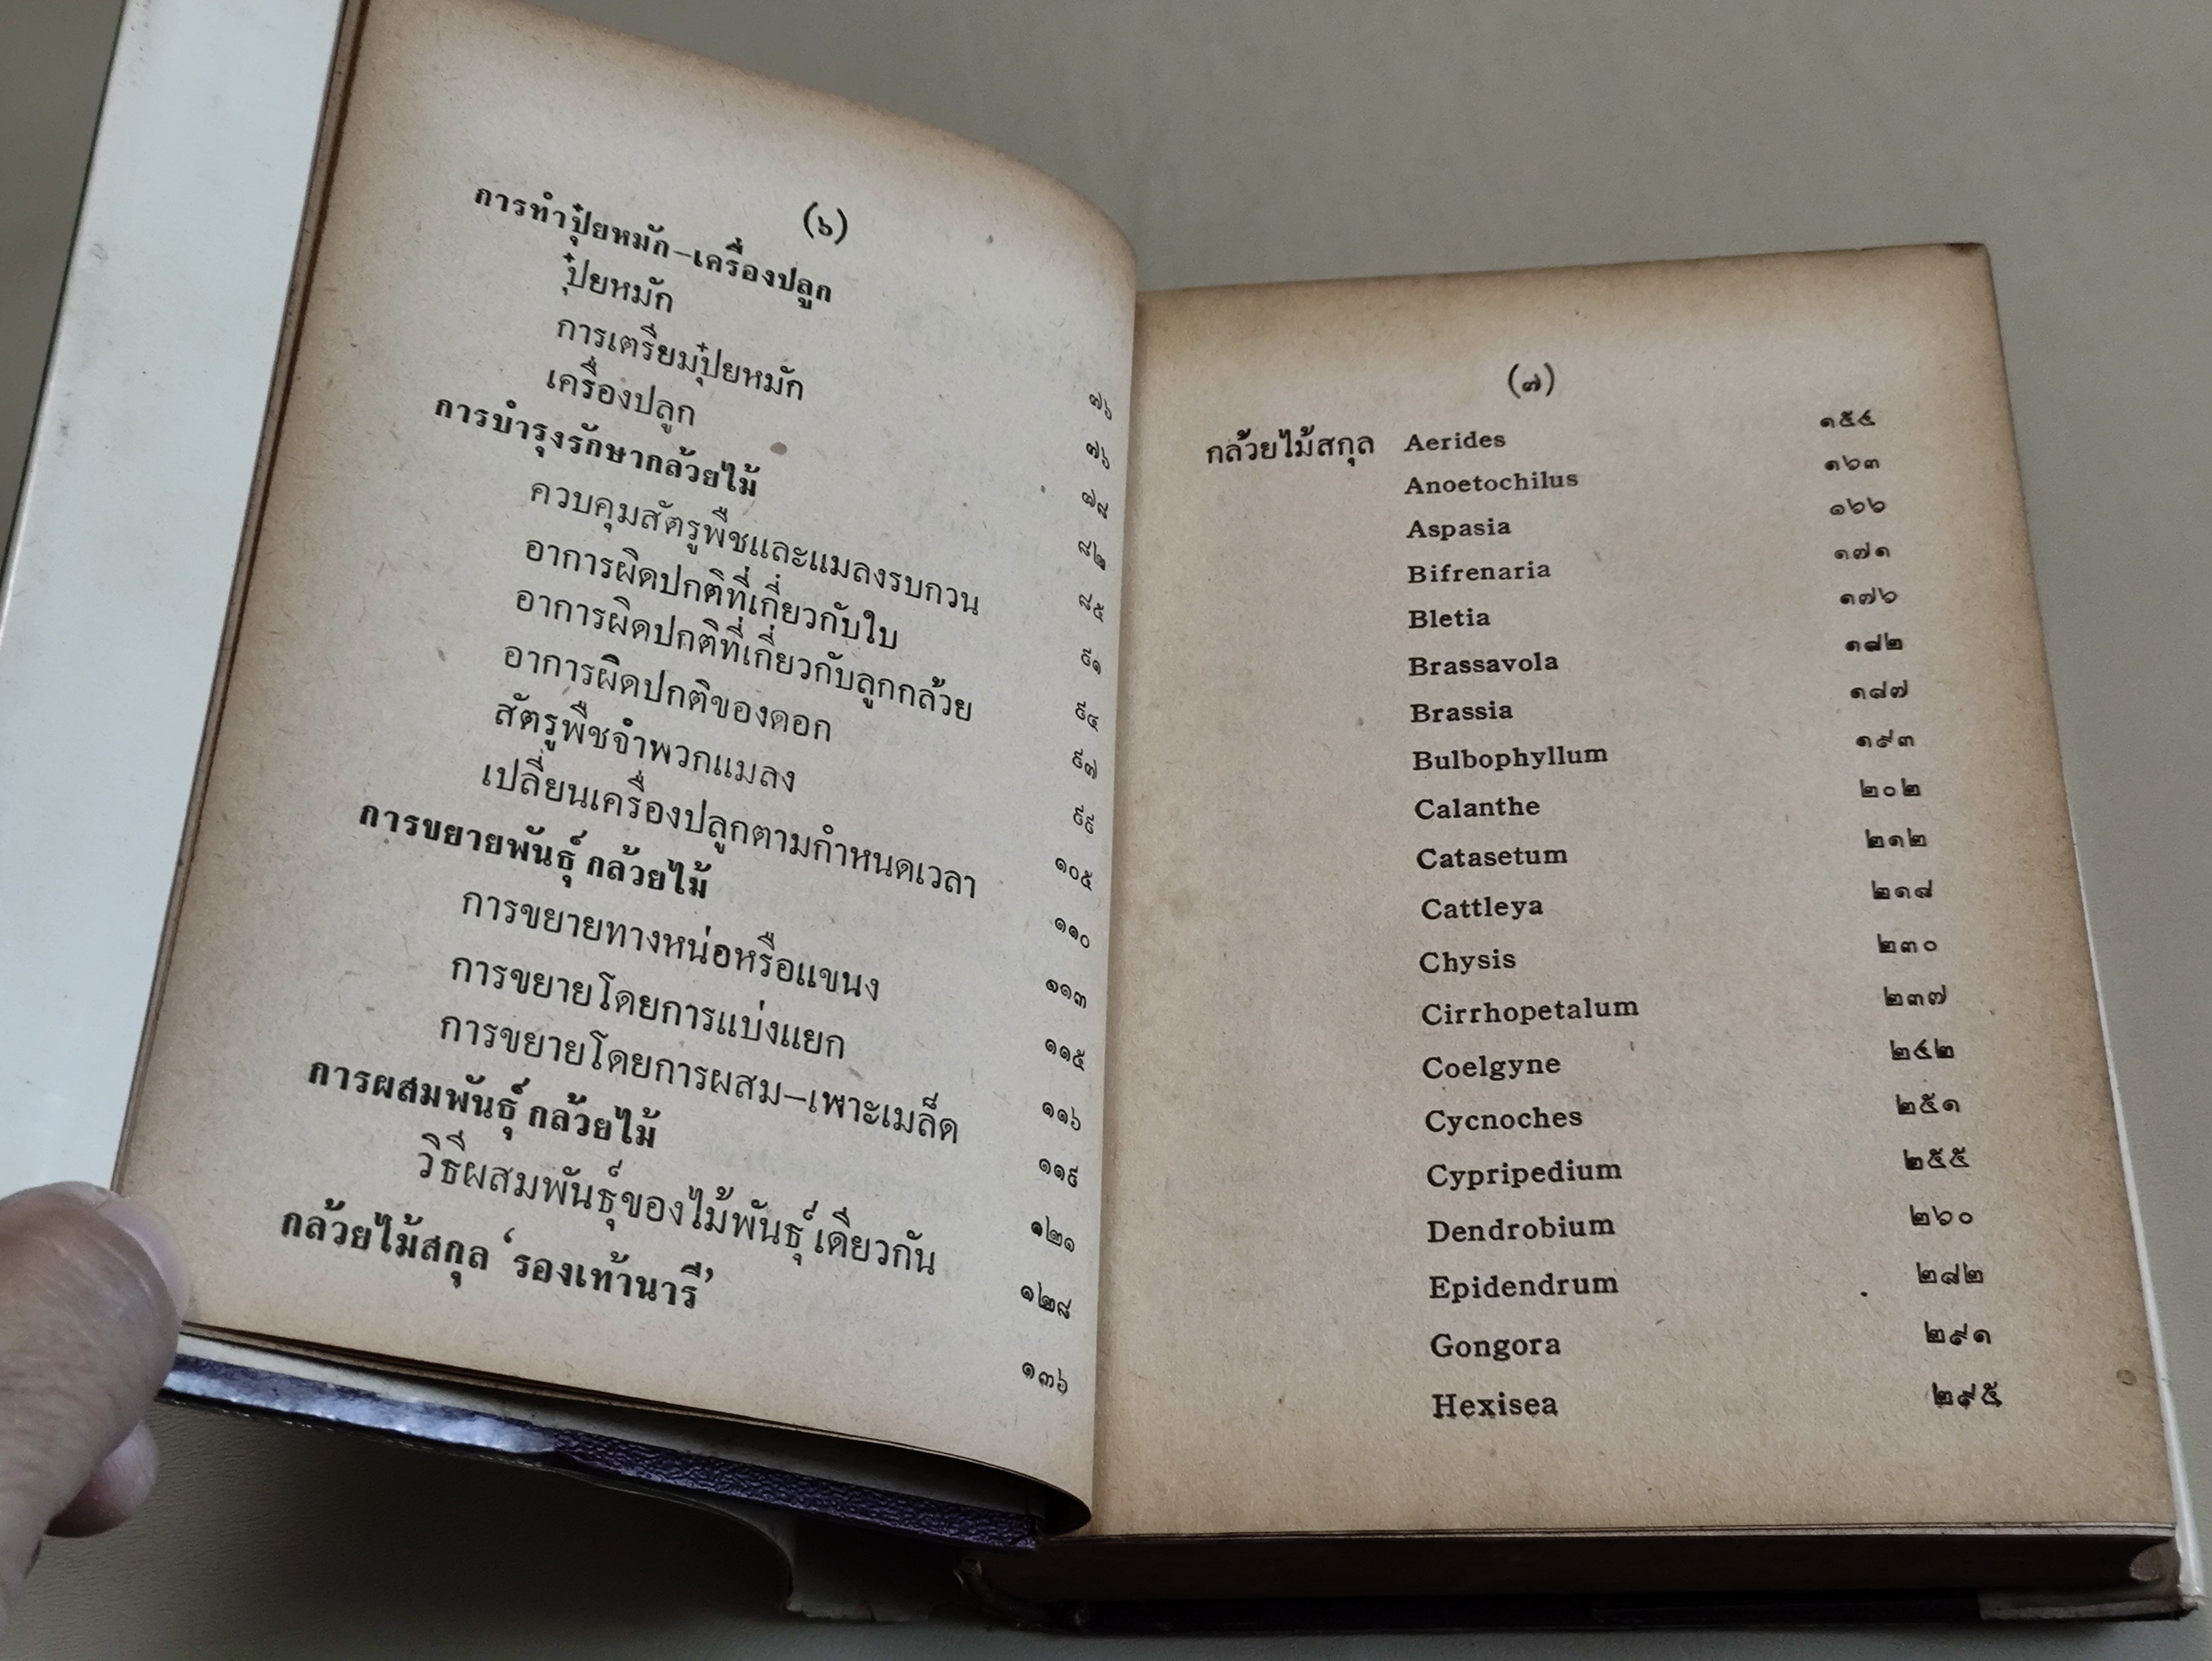 (๖)
การทำปุ๋ยหมัก–เครื่องปลูก ๗๖
ปุ๋ยหมัก ๗๖
การเตรียมปุ๋ยหมัก ๗๘
เครื่องปลูก ๘๒
การบำรุงรักษากล้วยไม้ ๘๕
ควบคุมสัตรูพืชและแมลงรบกวน ๙๑
อาการผิดปกติที่เกี่ยวกับใบ ๙๔
อาการผิดปกติที่เกี่ยวกับลูกกล้วย ๙๗
อาการผิดปกติของดอก ๙๙
สัตรูพืชจำพวกแมลง ๑๐๕
เปลี่ยนเครื่องปลูกตามกำหนดเวลา ๑๑๐
การขยายพันธุ์กล้วยไม้ ๑๑๓
การขยายทางหน่อหรือแขนง ๑๑๕
การขยายโดยการแบ่งแยก ๑๑๖
การขยายโดยการผสม–เพาะเมล็ด ๑๑๙
การผสมพันธุ์กล้วยไม้ ๑๒๑
วิธีผสมพันธุ์ของไม้พันธุ์เดียวกัน ๑๒๘
กล้วยไม้สกุล ‘รองเท้านารี’ ๑๓๖
(๗)
กล้วยไม้สกุล Aerides ๑๕๔
Anoetochilus ๑๖๓
Aspasia ๑๖๖
Bifrenaria ๑๗๑
Bletia ๑๗๖
Brassavola ๑๘๒
Brassia ๑๘๗
Bulbophyllum ๑๙๓
Calanthe ๒๐๒
Catasetum ๒๑๒
Cattleya ๒๑๘
Chysis ๒๓๐
Cirrhopetalum ๒๓๗
Coelgyne ๒๔๒
Cycnoches ๒๕๑
Cypripedium ๒๕๕
Dendrobium ๒๖๐
Epidendrum ๒๘๒
Gongora ๒๙๑
Hexisea ๒๙๕